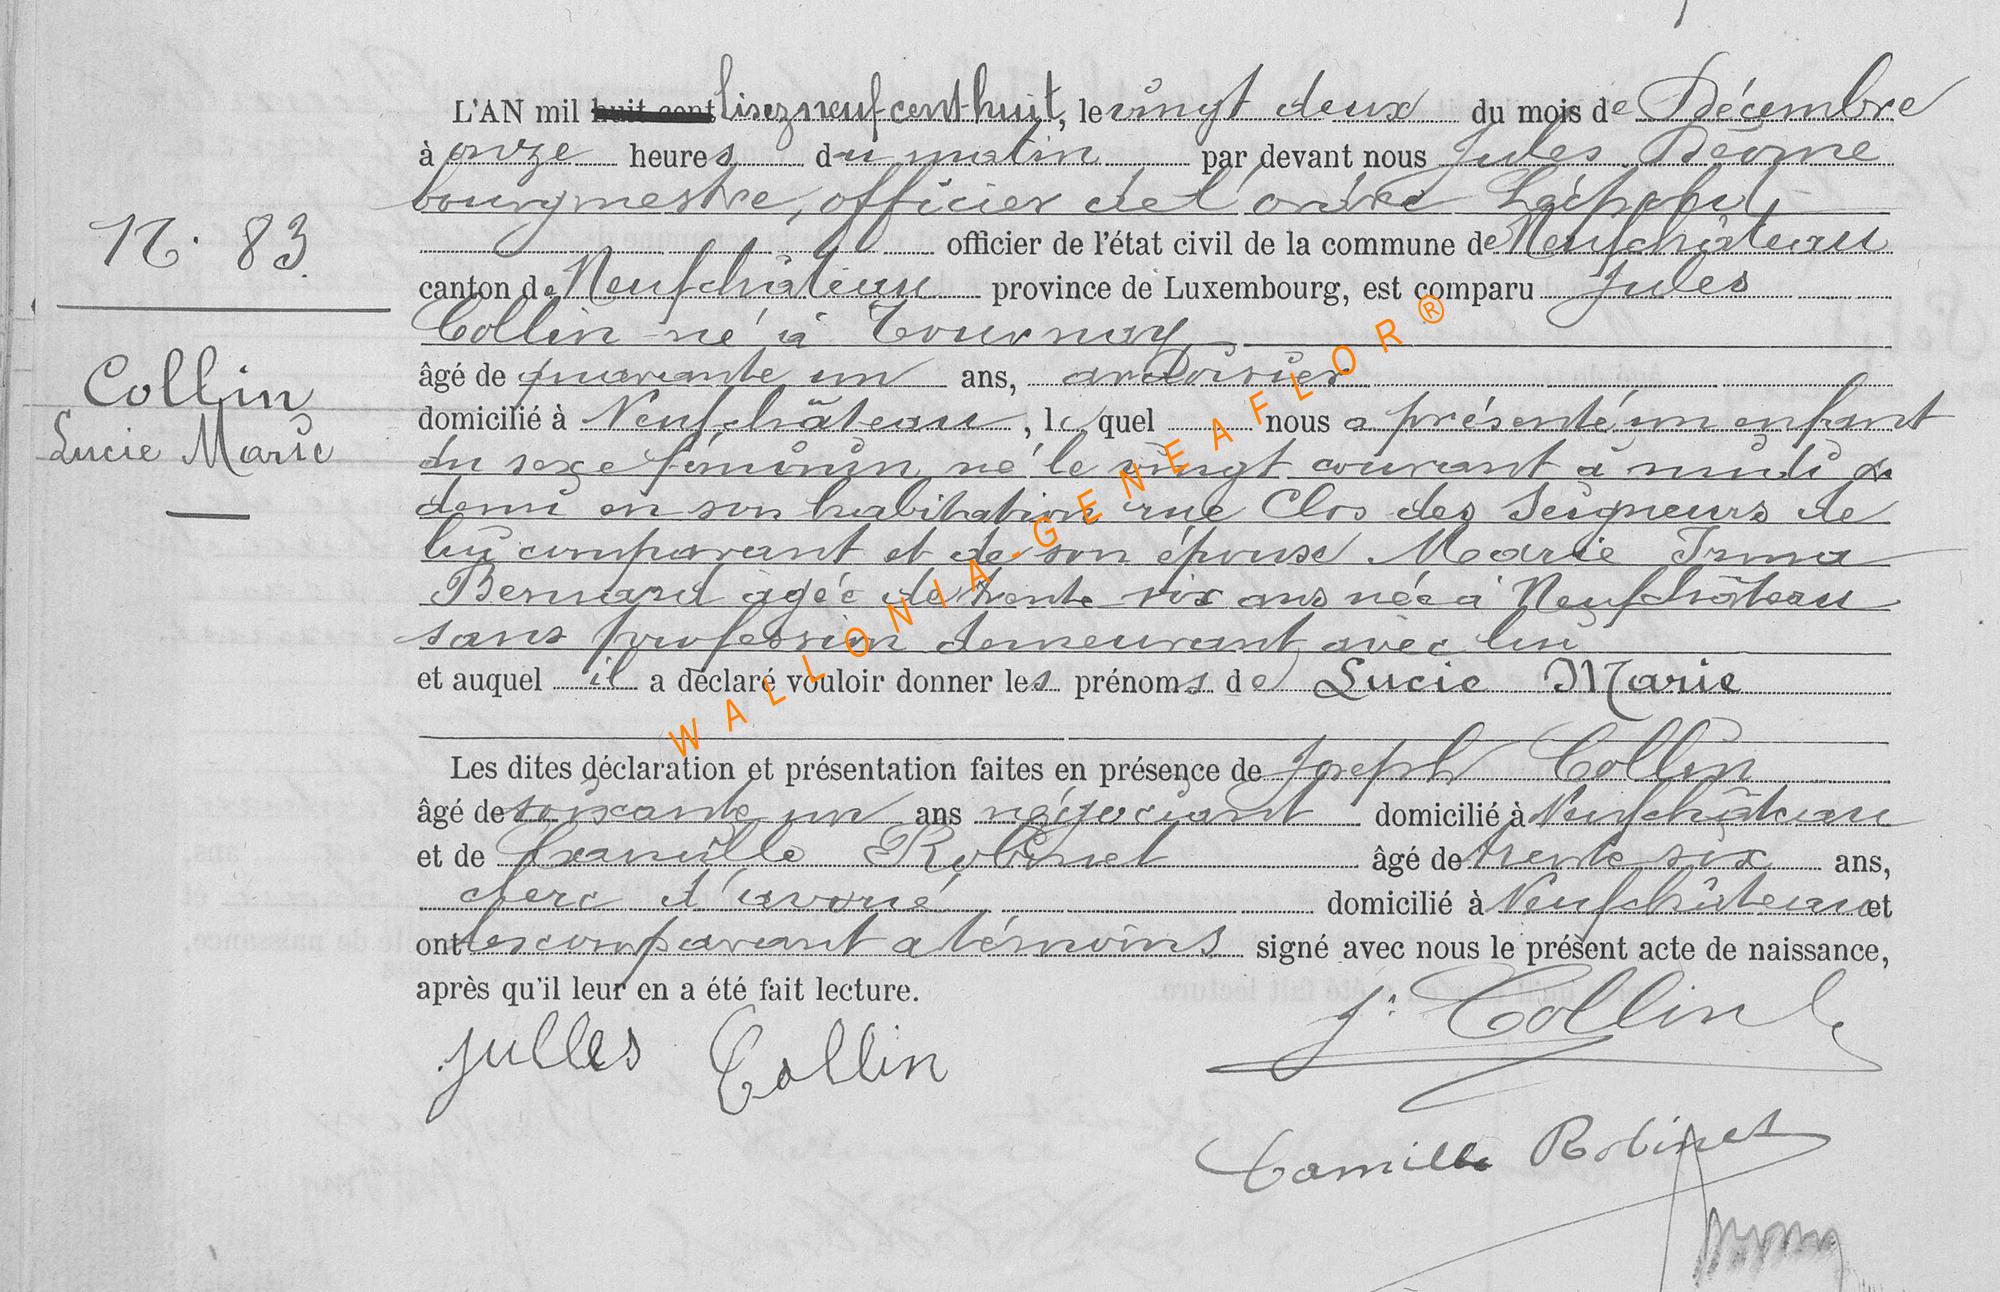 L'AN mil huit cent lisez neuf cent huit, le vingt deux du mois de Décembre
à onze heures du matin par devant nous Jules Déome
bourgmestre, officier de l'ordre Léopold
officier de l'état civil de la commune de Neufchâteau
N. 83
canton de Neufchâteau province de Luxembourg, est comparu Jules
Collin né à Tournay
âgé de quarante un ans, ardoisier
Collin
Lucie Marie
domicilié à Neufchâteau, lequel nous a présenté un enfant
du sexe féminin, né le vingt courant à midi &
demi en son habitation rue Clos des Seigneurs de
lui comparant et de son épouse Marie Irma
Bernard agée de trente six ans née à Neufchâteau
sans profession demeurant avec lui
et auquel il a déclaré vouloir donner les prénoms de Lucie Marie
Les dites déclaration et présentation faites en présence de Joseph Collin
âgé de soixante un ans négociant domicilié à Neufchâteau
et de Camille Robinet âgé de trente six ans,
clerc d'avoué domicilié à Neufchâteau et
ont les comparant & témoins signé avec nous le présent acte de naissance,
après qu'il leur en a été fait lecture.
Julles Collin
J. Collin
Camille Robinet
WALLONIA-GENEAFLOR®